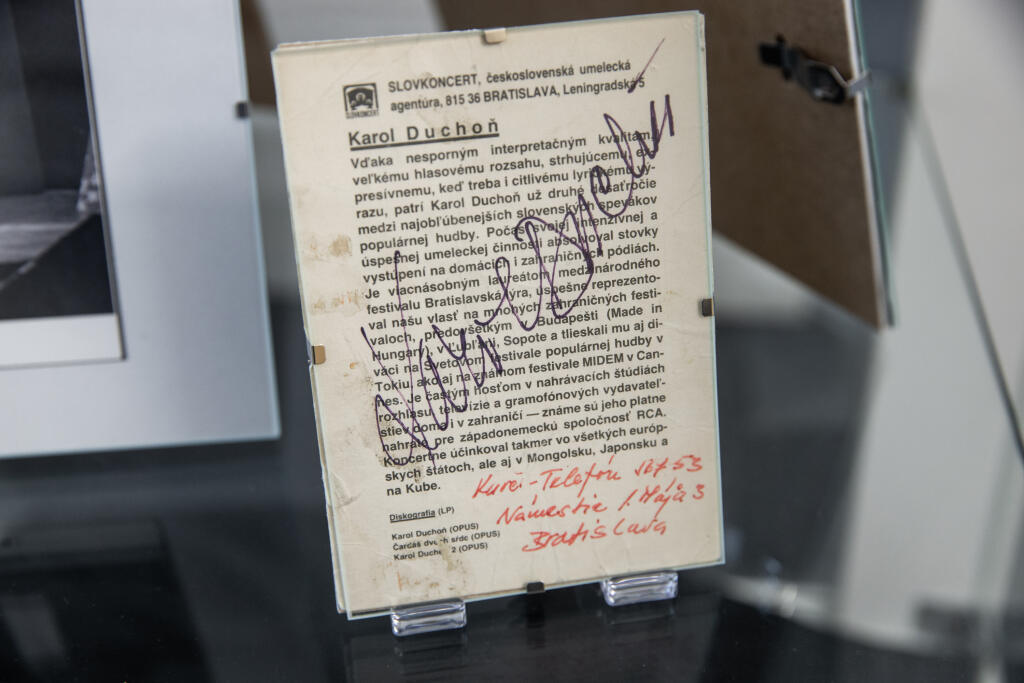 SLOVKONCERT, československá umelecká
agentúra, 815 36 BRATISLAVA, Leningradská 5
SLOVKONCERT
Karol Duchoň
Vďaka nesporným interpretačným kvalitám,
veľkému hlasovému rozsahu, strhujúcemu, ex-
presívnemu, keď treba i citlivému lyrickému vý-
razu, patrí Karol Duchoň už druhé desaťročie
medzi najobľúbenejších slovenských spevákov
populárnej hudby. Počas svojej intenzívnej a
úspešnej umeleckej činnosti absolvoval stovky
vystúpení na domácich i zahraničných pódiách.
Je viacnásobným laureátom medzinárodného
festivalu Bratislavská lýra, úspešne reprezento-
val našu vlasť na mnohých zahraničných festi-
valoch, predovšetkým v Budapešti (Made in
Hungary), v Ľubľani, Sopote a tlieskali mu aj di-
váci na Svetovom festivale populárnej hudby v
Tokiu, ako aj na známom festivale MIDEM v Can-
nes. Je častým hosťom v nahrávacích štúdiách
rozhlasu, televízie a gramofónových vydavateľ-
stiev doma i v zahraničí — známe sú jeho platne
nahraté pre západonemeckú spoločnosť RCA.
Koncertne účinkoval takmer vo všetkých európ-
skych štátoch, ale aj v Mongolsku, Japonsku a
na Kube.
Diskografia (LP)
Karol Duchoň (OPUS)
Čardáš dvoch sŕdc (OPUS)
Karol Duchoň 2 (OPUS)
Karol Duchoň
Námestie 1. Mája 3
Bratislava